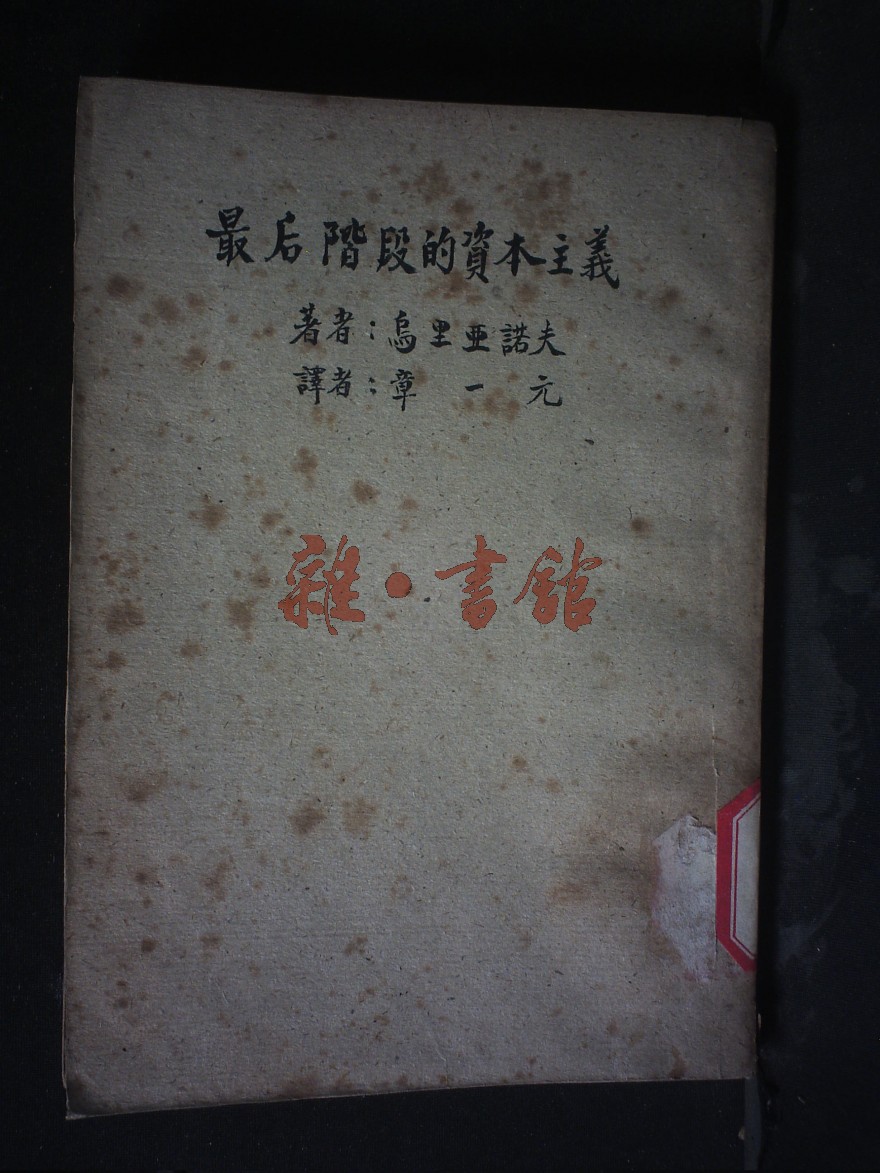 最后階段的資本主義
著者：烏里亜諾夫
譯者：章一元
雜·書館